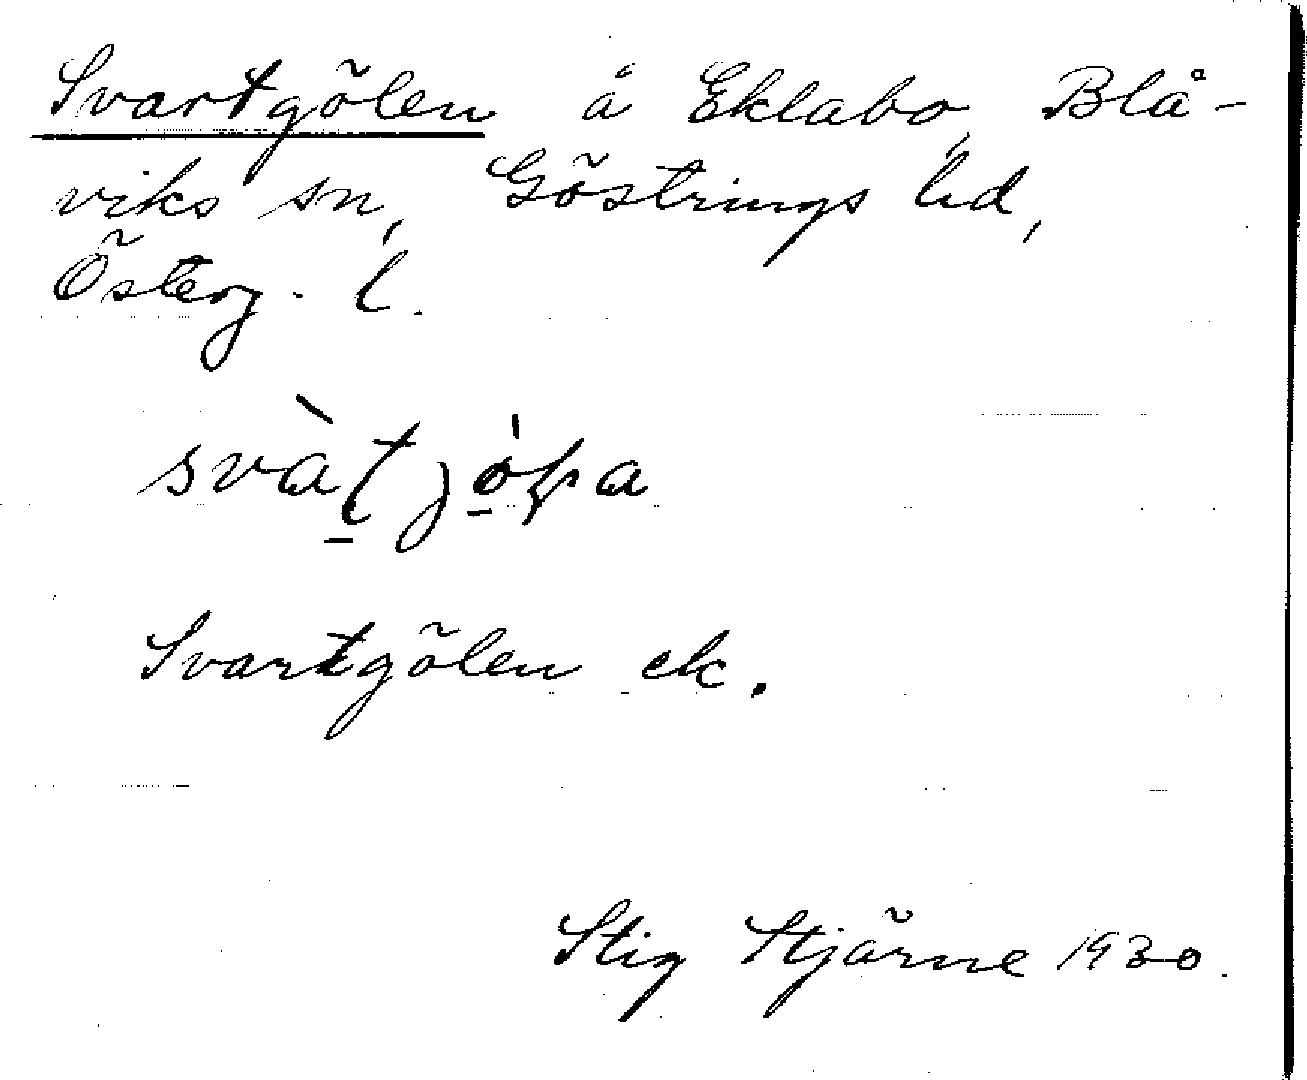 Svartgölen å Eklabo, Blå-
viks sn, Göstrings hd,
Österg. l.
Svartgölen ek.
Stig Stjärne 1930.